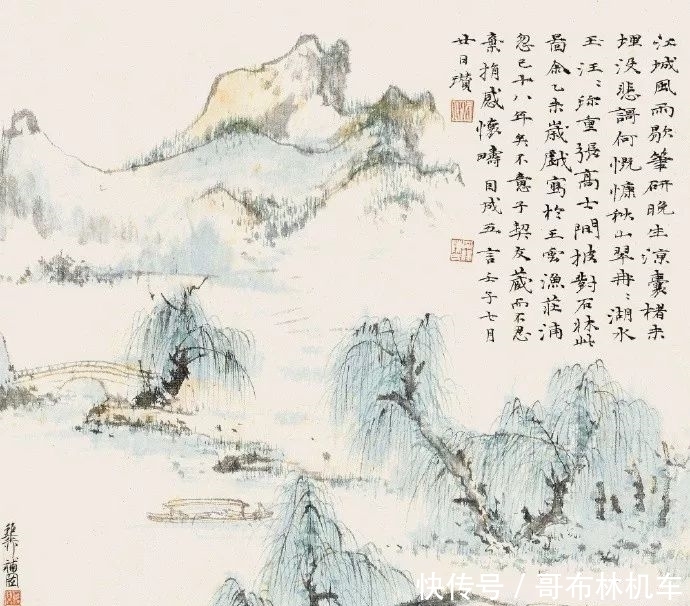 江城風雨歇筆研晚生涼囊楮未
埋没悲謌何慨慷秋山翠冉〻湖水
玉汪〻珍重張高士閒披對石牀此
啚余乙未歲戲寫於王雲漁莊浦
忽已十八年矣不意子契友藏而不忍
棄捐感懷疇因成五言壬子七月
廿日瓚
稚柳補图
快传号 / 哥布林机车